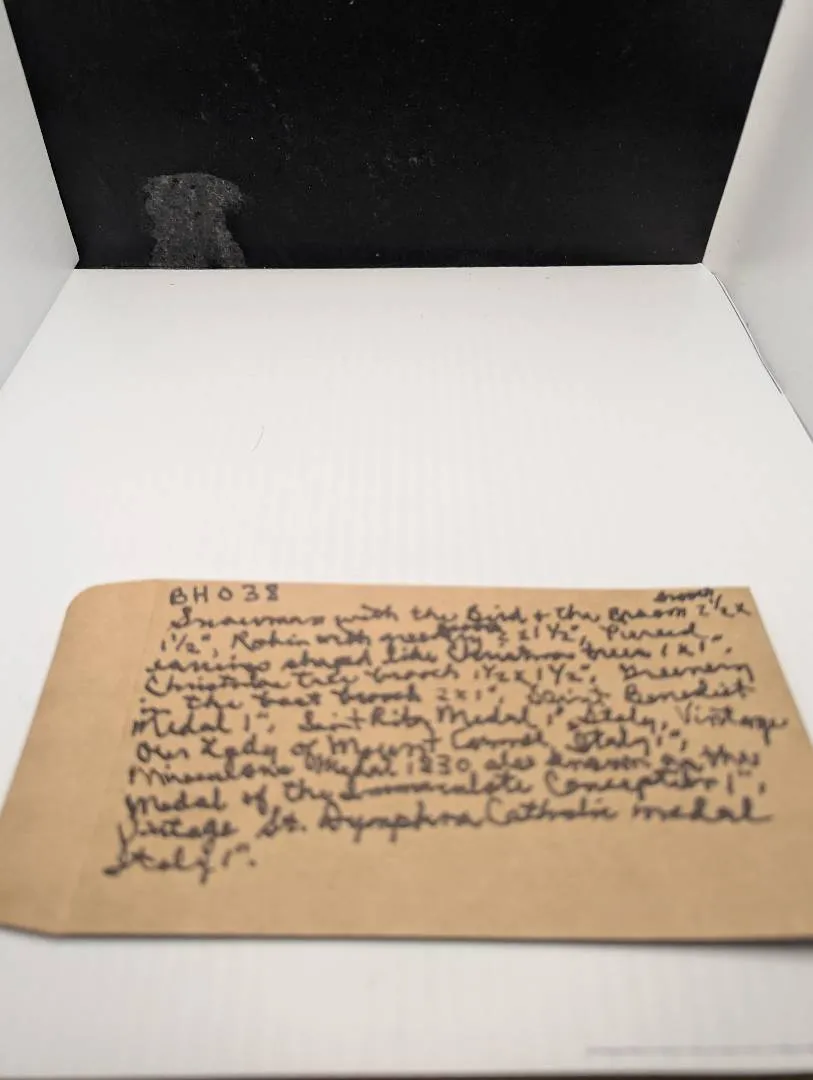 BH038
brooch
Snowman with the Bird & the Broom 2½ x
1½", Robin with greenery 2 x 1½", Pierced
earrings shaped like Christmas trees 1 x 1",
Christmas tree brooch 1½ x 1½", Greenery
in the boot brooch 2 x 1", Saint Benedict
Medal 1", Saint Rita Medal 1" Italy, Vintage
Our Lady of Mount Carmel, Italy 1",
Miraculous Medal 1830 also known as the
Medal of the Immaculate Conception 1",
Vintage St. Dymphna Catholic medal
Italy 1".